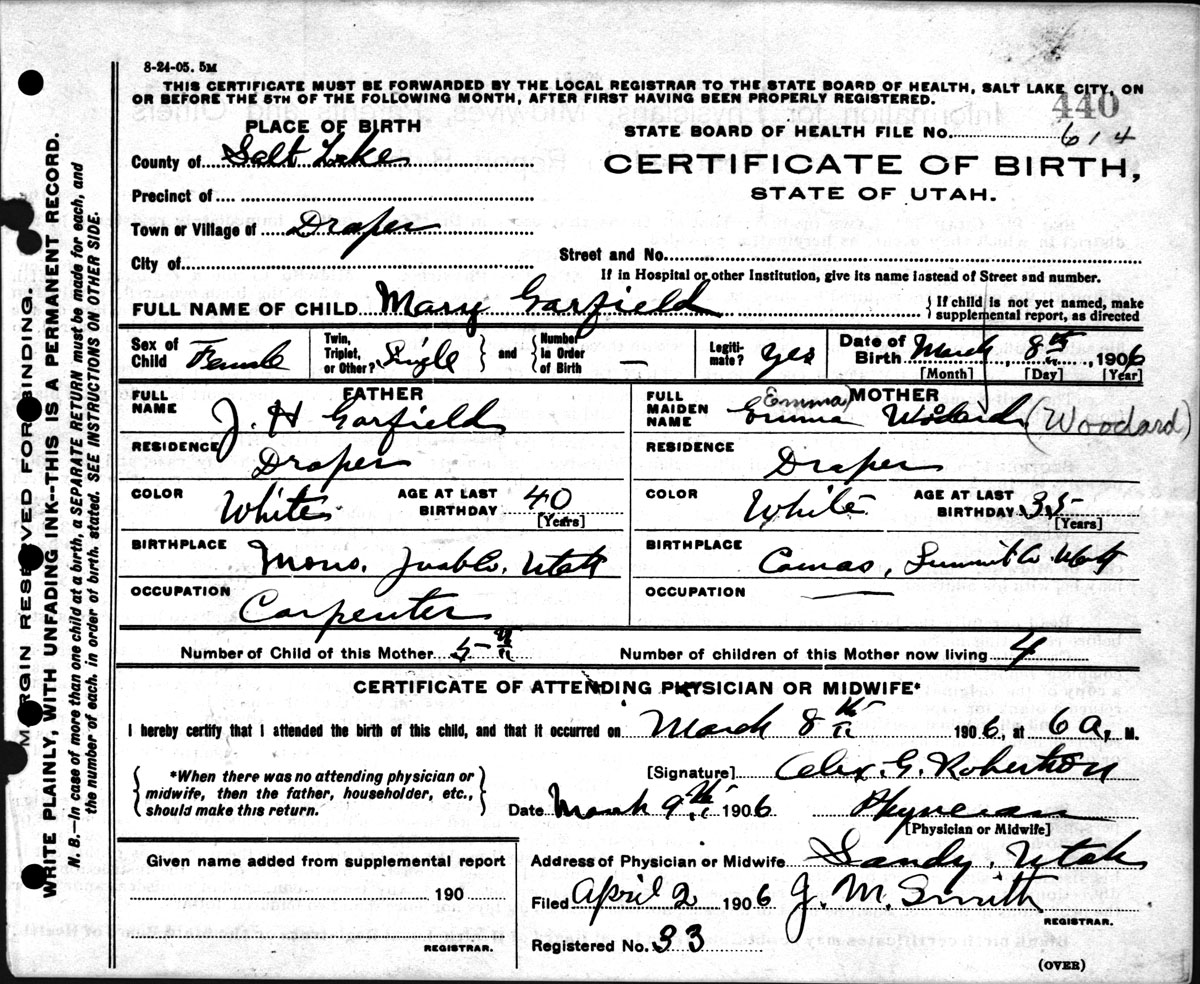 8-24-05. 5M
THIS CERTIFICATE MUST BE FORWARDED BY THE LOCAL REGISTRAR TO THE STATE BOARD OF HEALTH, SALT LAKE CITY, ON
OR BEFORE THE 5TH OF THE FOLLOWING MONTH, AFTER FIRST HAVING BEEN PROPERLY REGISTERED.
440
PLACE OF BIRTH
STATE BOARD OF HEALTH FILE No. 614
County of Salt Lake
CERTIFICATE OF BIRTH,
STATE OF UTAH.
Precinct of
Town or Village of Draper
City of
Street and No.
If in Hospital or other Institution, give its name instead of Street and number.
FULL NAME OF CHILD Mary Garfield
If child is not yet named, make
supplemental report, as directed
Sex of Child Female
Twin, Triplet, or Other? Single
and
Number In Order of Birth —
Legiti-mate? yes
Date of Birth March 8th, 1906
[Month] [Day] [Year]
FATHER
FULL NAME J. H Garfield
RESIDENCE Draper
COLOR White
AGE AT LAST BIRTHDAY 40
[Years]
BIRTHPLACE Mono. Juab Co. Utah
OCCUPATION Carpenter
MOTHER
FULL MAIDEN NAME Emma (Emma) Woodard (Woodard)
RESIDENCE Draper
COLOR White
AGE AT LAST BIRTHDAY 35
[Years]
BIRTHPLACE Camas, Summit Co Utah
OCCUPATION —
Number of Child of this Mother 5th
Number of children of this Mother now living 4
CERTIFICATE OF ATTENDING PHYSICIAN OR MIDWIFE*
I hereby certify that I attended the birth of this child, and that it occurred on March 8th 1906, at 6 a. M.
*When there was no attending physician or
midwife, then the father, householder, etc.,
should make this return.
[Signature] Alex. G. Robertson
Date March 9th 1906 Physician
[Physician or Midwife]
Given name added from supplemental report
190
REGISTRAR.
Address of Physician or Midwife Sandy, Utah
Filed April 2 1906 J. M. Smith
REGISTRAR.
Registered No. 33
(OVER)
MARGIN RESERVED FOR BINDING.
WRITE PLAINLY, WITH UNFADING INK--THIS IS A PERMANENT RECORD.
N. B.—In case of more than one child at a birth, a SEPARATE RETURN must be made for each, and
the number of each, in order of birth, stated. SEE INSTRUCTIONS ON OTHER SIDE.